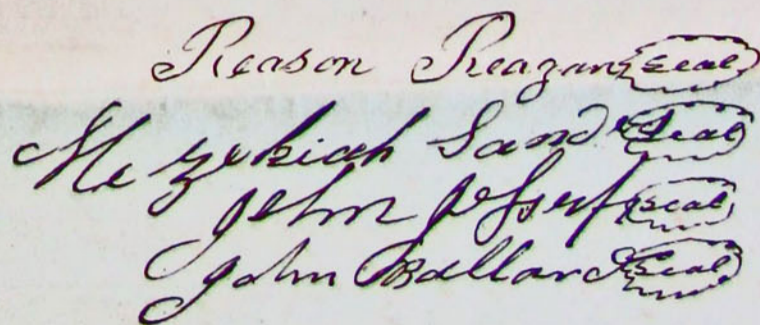 Reason Reagan seal
Hezekiah Sands seal
John seal
John Ballard seal